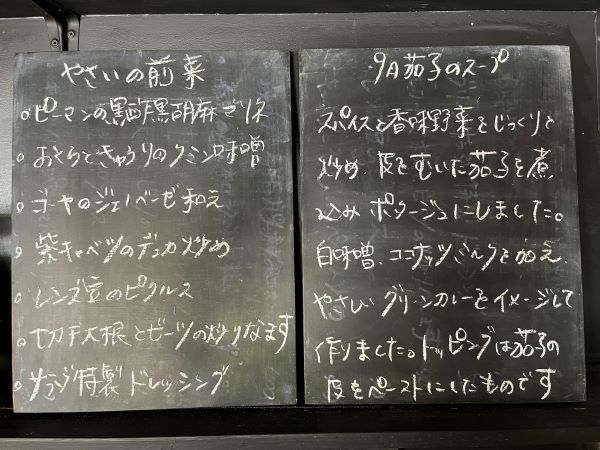 やさいの前菜
ピーマンの黒酢黒胡麻きんぴら
おくらときゅうりのクミン味噌
ゴーヤのジェノベーゼ和え
紫キャベツのデュカ炒め
レンズ豆のピクルス
切干大根とビーツの炒りなます
サラダ特製ドレッシング
9月茄子のスープ
スパイスと香味野菜をじっくりと
炒め、皮をむいた茄子を煮
込みポタージュにしました。
白味噌、ココナッツミルクを加え、
やさしいグリーンカレーをイメージして
作りました。トッピングは茄子の
皮をペーストにしたものです